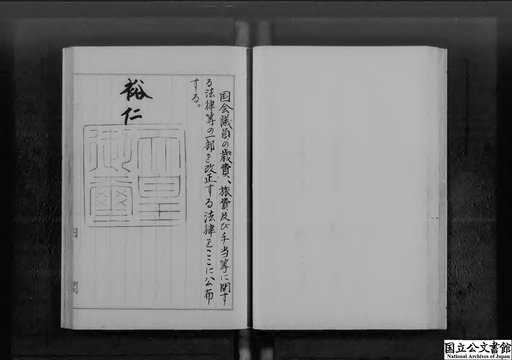 国会議員の歳費、旅費及び手当等に関す
る法律等の一部を改正する法律をここに公布
する。
裕仁
天皇
御璽
国立公文書館
National Archives of Japan